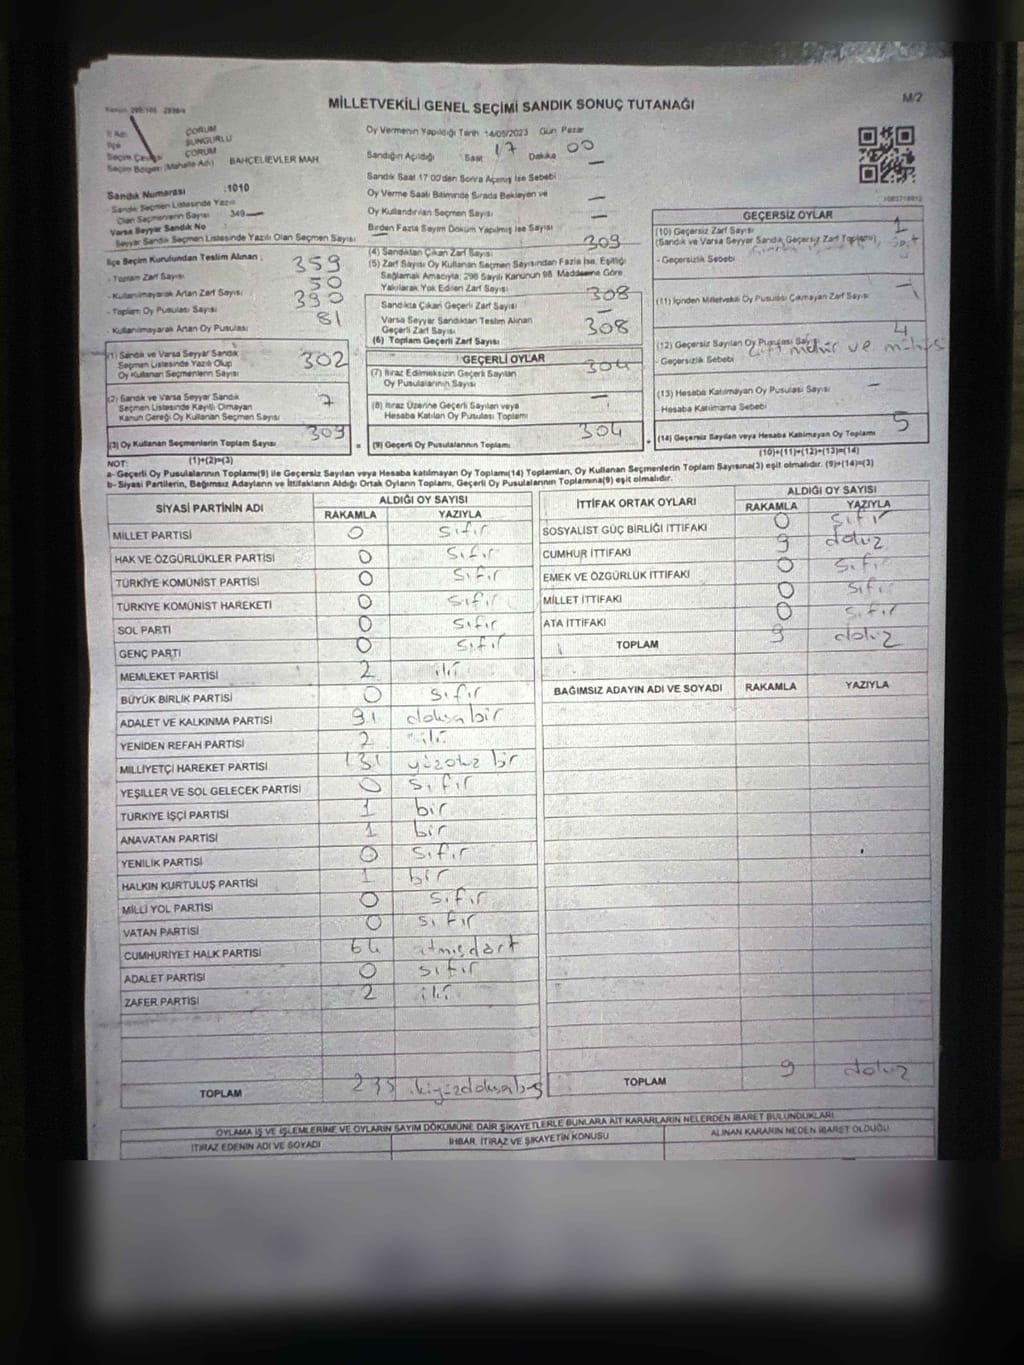 MİLLETVEKİLİ GENEL SEÇİMİ SANDIK SONUÇ TUTANAĞI
M/2
İl Adı ÇORUM
İlçe SUNGURLU
Seçim Çevresi ÇORUM
Seçim Bölgesi (Mahalle Adı) BAHÇELİEVLER MAH
Sandık Numarası :1010
- Sandık Seçmen Listesinde Yazılı
Olan Seçmenlerin Sayısı 349
Varsa Seyyar Sandık No
Seyyar Sandık Seçmen Listesinde Yazılı Olan Seçmen Sayısı
İlçe Seçim Kurulundan Teslim Alınan ;
- Toplam Zarf Sayısı 359
- Kullanılmayarak Artan Zarf Sayısı 50
- Toplam Oy Pusulası Sayısı 390
- Kullanılmayarak Artan Oy Pusulası 81
(1) Sandık ve Varsa Seyyar Sandık
Seçmen Listesinde Yazılı Olup
Oy Kullanan Seçmenlerin Sayısı 302
(2) Sandık ve Varsa Seyyar Sandık
Seçmen Listesinde Kayıtlı Olmayan
Kanun Gereği Oy Kullanan Seçmen Sayısı 7
(3) Oy Kullanan Seçmenlerin Toplam Sayısı 309
(1)+(2)=(3)
Oy Vermenin Yapıldığı Tarih 14/05/2023 Gün Pazar
Sandığın Açıldığı Saat 17 Dakika 00
Sandık Saat 17.00'den Sonra Açılmış İse Sebebi
Oy Verme Saati Bitiminde Sırada Bekleyen ve
Oy Kullandırılan Seçmen Sayısı
Birden Fazla Sayım Döküm Yapılmış İse Sayısı
(4) Sandıktan Çıkan Zarf Sayısı 309
(5) Zarf Sayısı Oy Kullanan Seçmen Sayısından Fazla İse, Eşitliği
Sağlamak Amacıyla; 298 Sayılı Kanunun 98. Maddesine Göre
Yakılarak Yok Edilen Zarf Sayısı
Sandıkta Çıkan Geçerli Zarf Sayısı 308
Varsa Seyyar Sandıktan Teslim Alınan
Geçerli Zarf Sayısı
(6) Toplam Geçerli Zarf Sayısı 308
GEÇERLİ OYLAR
(7) İtiraz Edilmeksizin Geçerli Sayılan
Oy Pusulalarının Sayısı 304
(8) İtiraz Üzerine Geçerli Sayılan veya
Hesaba Katılan Oy Pusulası Toplamı
(9) Geçerli Oy Pusulalarının Toplamı 304
GEÇERSİZ OYLAR
(10) Geçersiz Zarf Sayısı 1
(Sandık ve Varsa Seyyar Sandık Geçersiz Zarf Toplamı)
- Geçersizlik Sebebi
(11) İçinden Milletvekili Oy Pusulası Çıkmayan Zarf Sayısı
(12) Geçersiz Sayılan Oy Pusulası Sayısı 4
- Geçersizlik Sebebi
(13) Hesaba Katılmayan Oy Pusulası Sayısı
- Hesaba Katılmama Sebebi
(14) Geçersiz Sayılan veya Hesaba Katılmayan Oy Toplamı 5
(10)+(11)+(12)+(13)=(14)
NOT:
a- Geçerli Oy Pusulalarının Toplamı(9) ile Geçersiz Sayılan veya Hesaba katılmayan Oy Toplamı(14) Toplamları, Oy Kullanan Seçmenlerin Toplam Sayısına(3) eşit olmalıdır. (9)+(14)=(3)
b- Siyasi Partilerin, Bağımsız Adayların ve İttifakların Aldığı Ortak Oyların Toplamı, Geçerli Oy Pusulalarının Toplamına(9) eşit olmalıdır.
SİYASİ PARTİNİN ADI ALDIĞI OY SAYISI
RAKAMLA YAZIYLA
MİLLET PARTİSİ 0 sıfır
HAK VE ÖZGÜRLÜKLER PARTİSİ 0 sıfır
TÜRKİYE KOMÜNİST PARTİSİ 0 sıfır
TÜRKİYE KOMÜNİST HAREKETİ 0 sıfır
SOL PARTİ 0 sıfır
GENÇ PARTİ 0 sıfır
MEMLEKET PARTİSİ 2 iki
BÜYÜK BİRLİK PARTİSİ 0 sıfır
ADALET VE KALKINMA PARTİSİ 91 doksabir
YENİDEN REFAH PARTİSİ 2 iki
MİLLİYETÇİ HAREKET PARTİSİ 131 yüzotuz bir
YEŞİLLER VE SOL GELECEK PARTİSİ 0 sıfır
TÜRKİYE İŞÇİ PARTİSİ 1 bir
ANAVATAN PARTİSİ 1 bir
YENİLİK PARTİSİ 0 sıfır
HALKIN KURTULUŞ PARTİSİ 1 bir
MİLLİ YOL PARTİSİ 0 sıfır
VATAN PARTİSİ 0 sıfır
CUMHURİYET HALK PARTİSİ 64 atmışdört
ADALET PARTİSİ 0 sıfır
ZAFER PARTİSİ 2 iki
TOPLAM 295 ikiyüzdoksabeş
İTTİFAK ORTAK OYLARI ALDIĞI OY SAYISI
RAKAMLA YAZIYLA
SOSYALİST GÜÇ BİRLİĞİ İTTİFAKI 0 sıfır
CUMHUR İTTİFAKI 9 dokuz
EMEK VE ÖZGÜRLÜK İTTİFAKI 0 sıfır
MİLLET İTTİFAKI 0 sıfır
ATA İTTİFAKI 0 sıfır
TOPLAM 9 dokuz
BAĞIMSIZ ADAYIN ADI VE SOYADI RAKAMLA YAZIYLA
TOPLAM 9 dokuz
OYLAMA İŞ VE İŞLEMLERİNE VE OYLARIN SAYIM DÖKÜMÜNE DAİR ŞİKAYETLERLE BUNLARA AİT KARARLARIN NELERDEN İBARET BULUNDUKLARI
İTİRAZ EDENİN ADI VE SOYADI İHBAR, İTİRAZ VE ŞİKAYETİN KONUSU ALINAN KARARIN NEDEN İBARET OLDUĞU